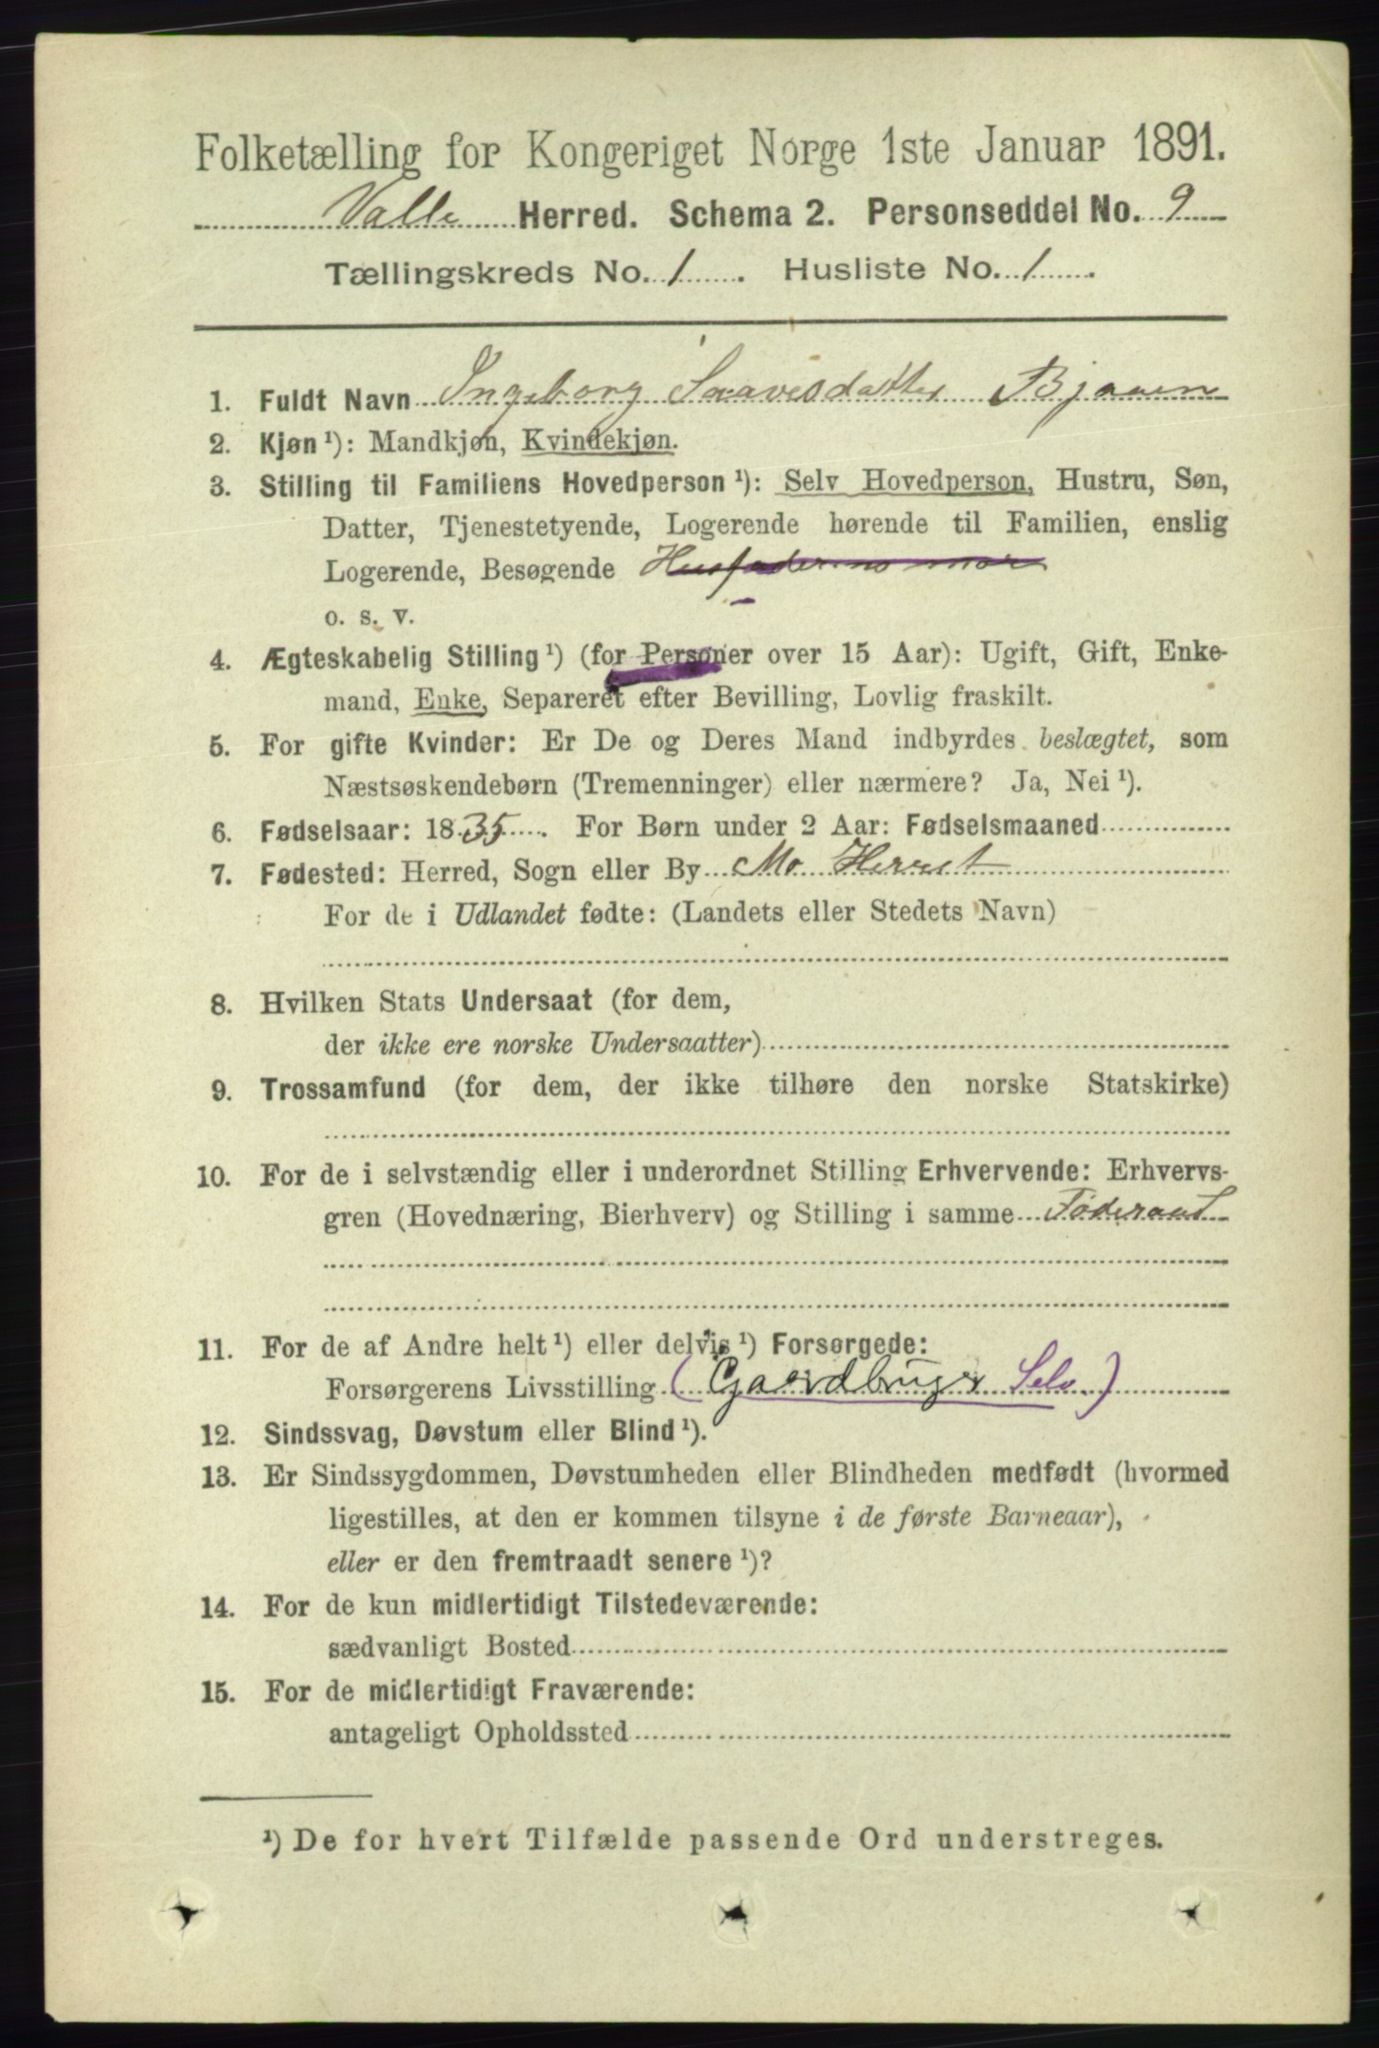 Folketælling for Kongeriget Norge 1ste Januar 1891.
Valle Herred. Schema 2. Personseddel No. 9
Tællingskreds No. 1. Husliste No. 1.
1. Fuldt Navn Ingeborg Saavesdatter Bjaaen
2. Kjøn ¹): Mandkjøn, Kvindekjøn.
3. Stilling til Familiens Hovedperson ¹): Selv Hovedperson, Hustru, Søn,
Datter, Tjenestetyende, Logerende hørende til Familien, enslig
Logerende, Besøgende Husfaderens mor
o. s. v.
4. Ægteskabelig Stilling ¹) (for Personer over 15 Aar): Ugift, Gift, Enke-
mand, Enke, Separeret efter Bevilling, Lovlig fraskilt.
5. For gifte Kvinder: Er De og Deres Mand indbyrdes beslægtet, som
Næstsøskendebørn (Tremenninger) eller nærmere? Ja, Nei ¹).
6. Fødselsaar: 1835. For Børn under 2 Aar: Fødselsmaaned
7. Fødested: Herred, Sogn eller By Mo Herret
For de i Udlandet fødte: (Landets eller Stedets Navn)
8. Hvilken Stats Undersaat (for dem,
der ikke ere norske Undersaatter)
9. Trossamfund (for dem, der ikke tilhøre den norske Statskirke)
10. For de i selvstændig eller i underordnet Stilling Erhvervende: Erhvervs-
gren (Hovednæring, Bierhverv) og Stilling i samme Føderaad
11. For de af Andre helt ¹) eller delvis ¹) Forsørgede:
Forsørgerens Livsstilling (Gaardbruger Selv)
12. Sindssvag, Døvstum eller Blind ¹).
13. Er Sindssygdommen, Døvstumheden eller Blindheden medfødt (hvormed
ligestilles, at den er kommen tilsyne i de første Barneaar),
eller er den fremtraadt senere ¹)?
14. For de kun midlertidigt Tilstedeværende:
sædvanligt Bosted
15. For de midlertidigt Fraværende:
antageligt Opholdssted
¹) De for hvert Tilfælde passende Ord understreges.